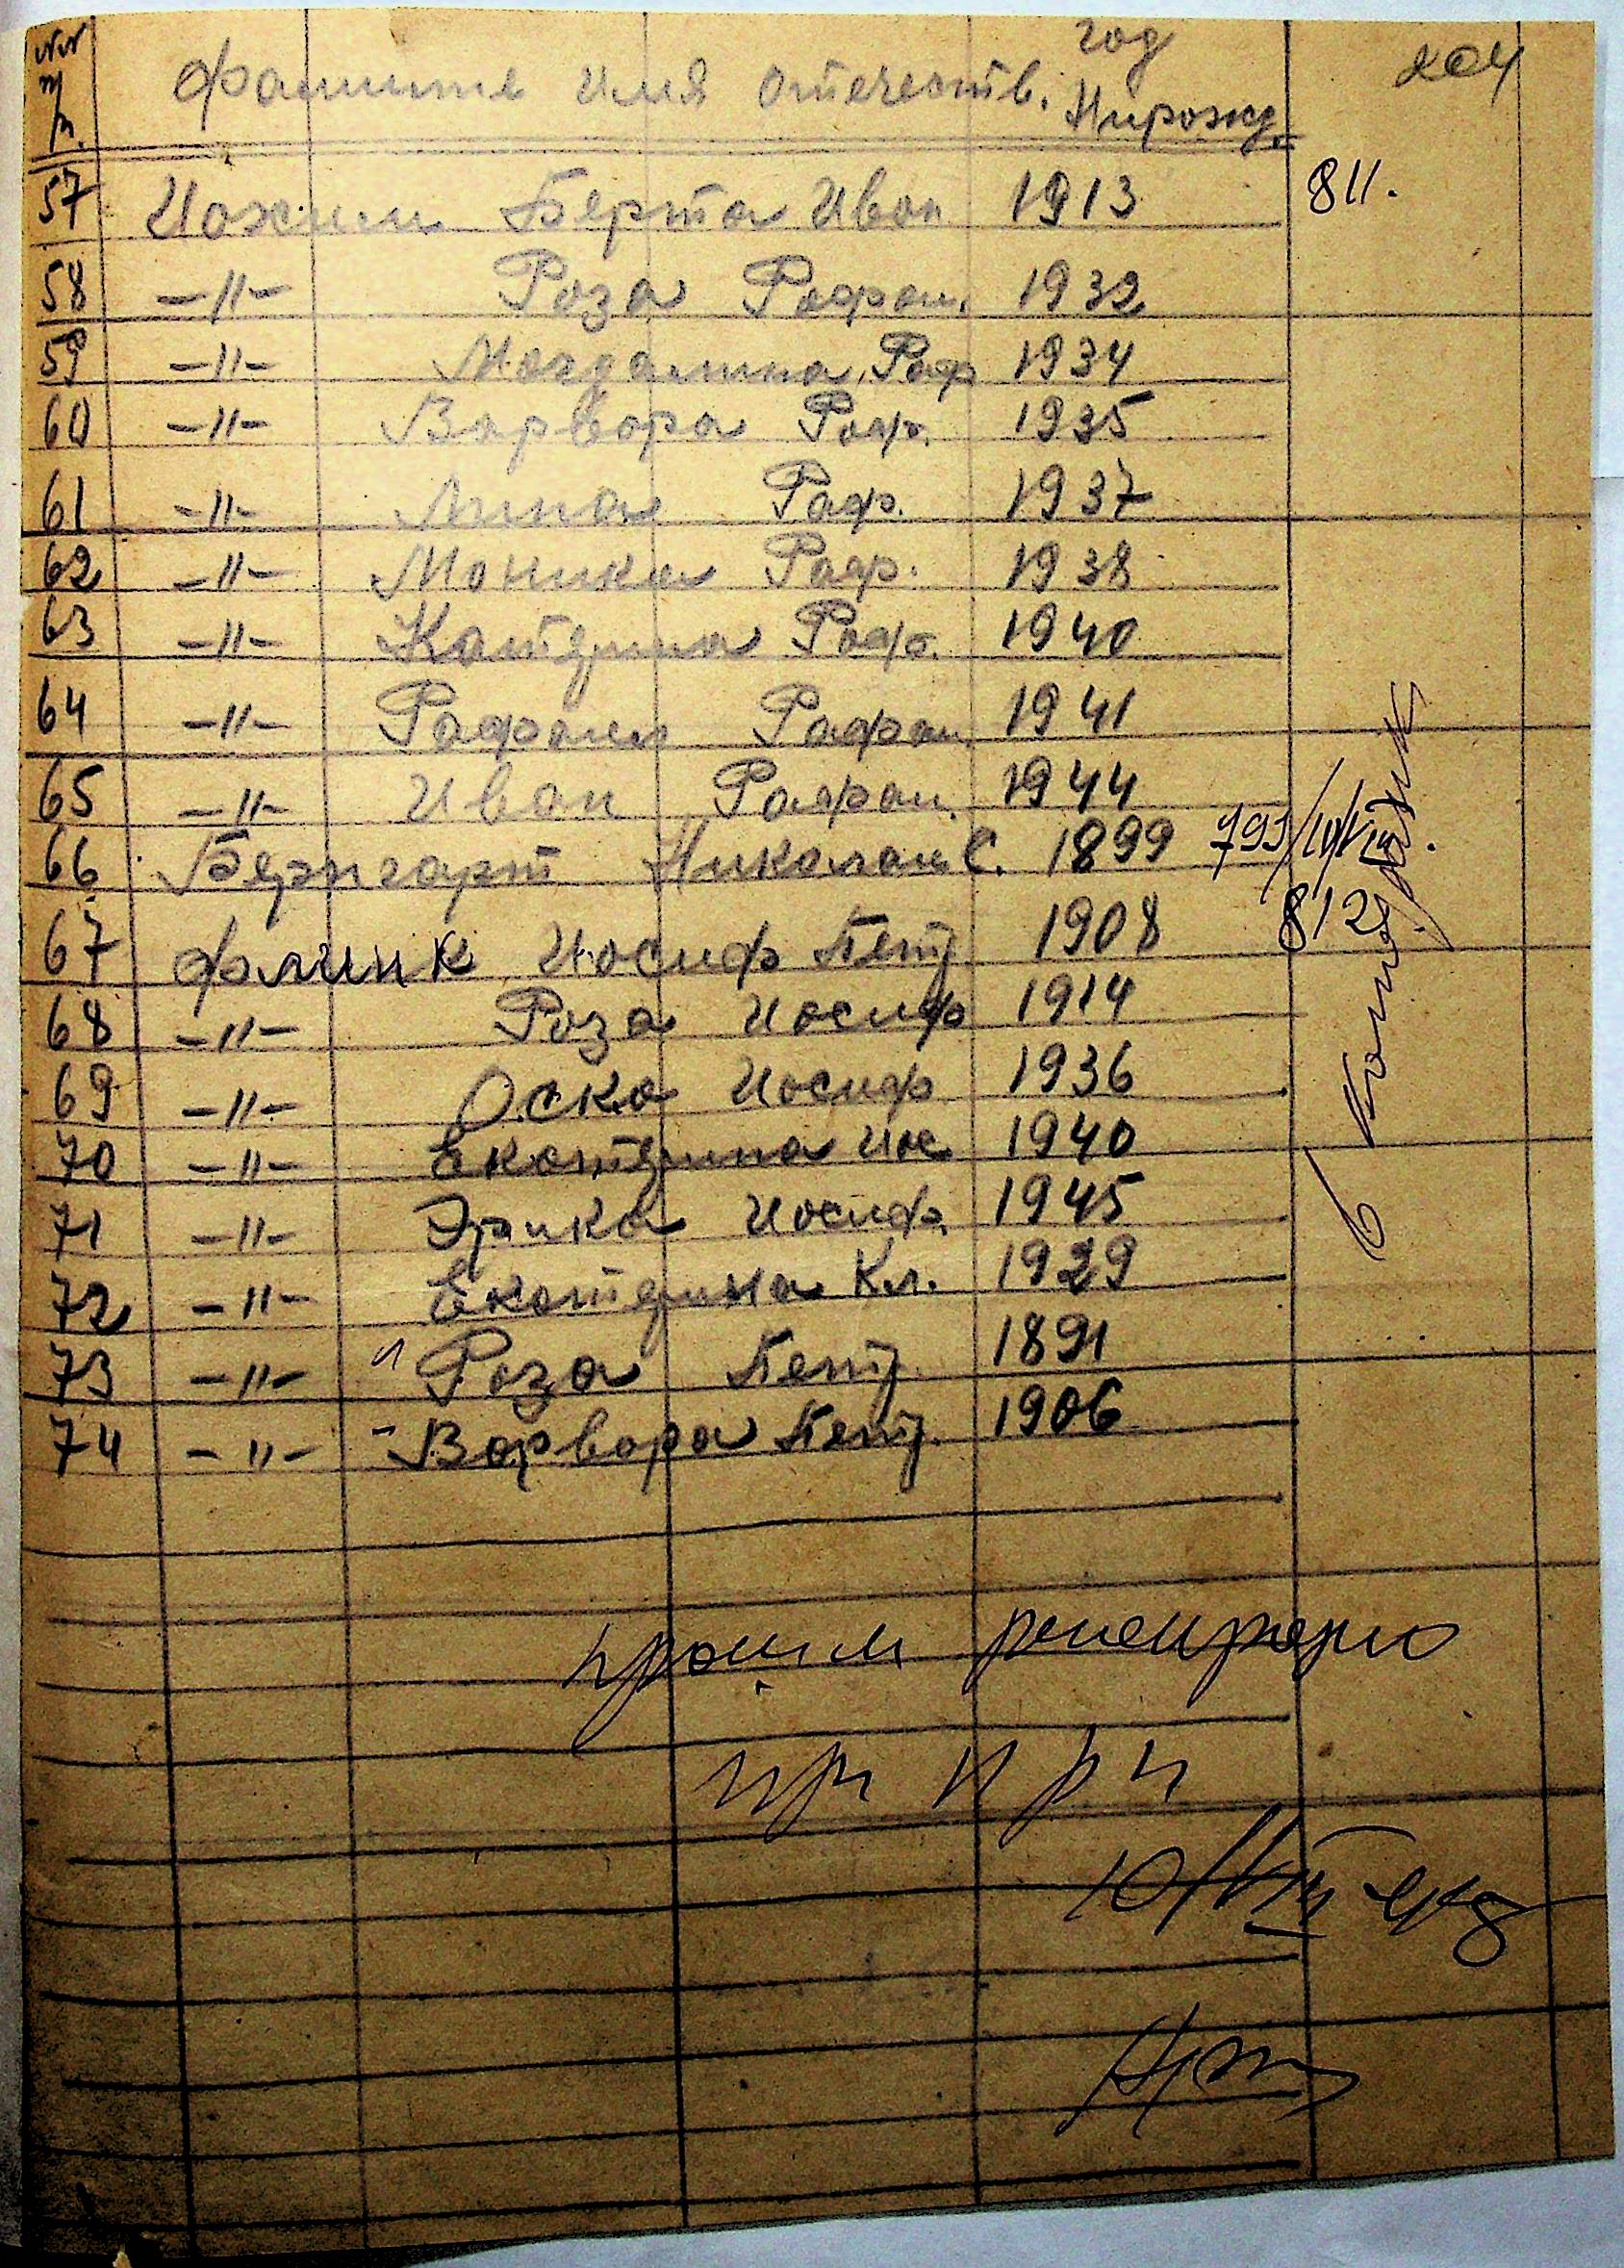 №№ п/п. Фамилие Имя Отечеств. год И рожд.
204
57 Иохим Берта Иван 1913 811.
58 -"- Роза Рафаи. 1932
59 -"- Магдалина Раф 1934
60 -"- Варвара Раф. 1935
61 -"- Лина Раф. 1937
62 -"- Моника Раф. 1938
63 -"- Катерина Раф. 1940
64 -"- Рафаил Рафаи. 1941
65 -"- Иван Рафаи. 1944
66 Бернгарт Николай С. 1899 793/10/VIII
67 Флинк Иосиф Петр 1908 812
68 -"- Роза Иосиф 1914
69 -"- Оска Иосиф 1936
70 -"- Екатерина Иос 1940
71 -"- Эрика Иосиф. 1945
72 -"- Екатерина Кл. 1929
73 -"- Роза Петр. 1891
74 -"- Варвара Петр. 1906
в
прошли
10/VIII-48